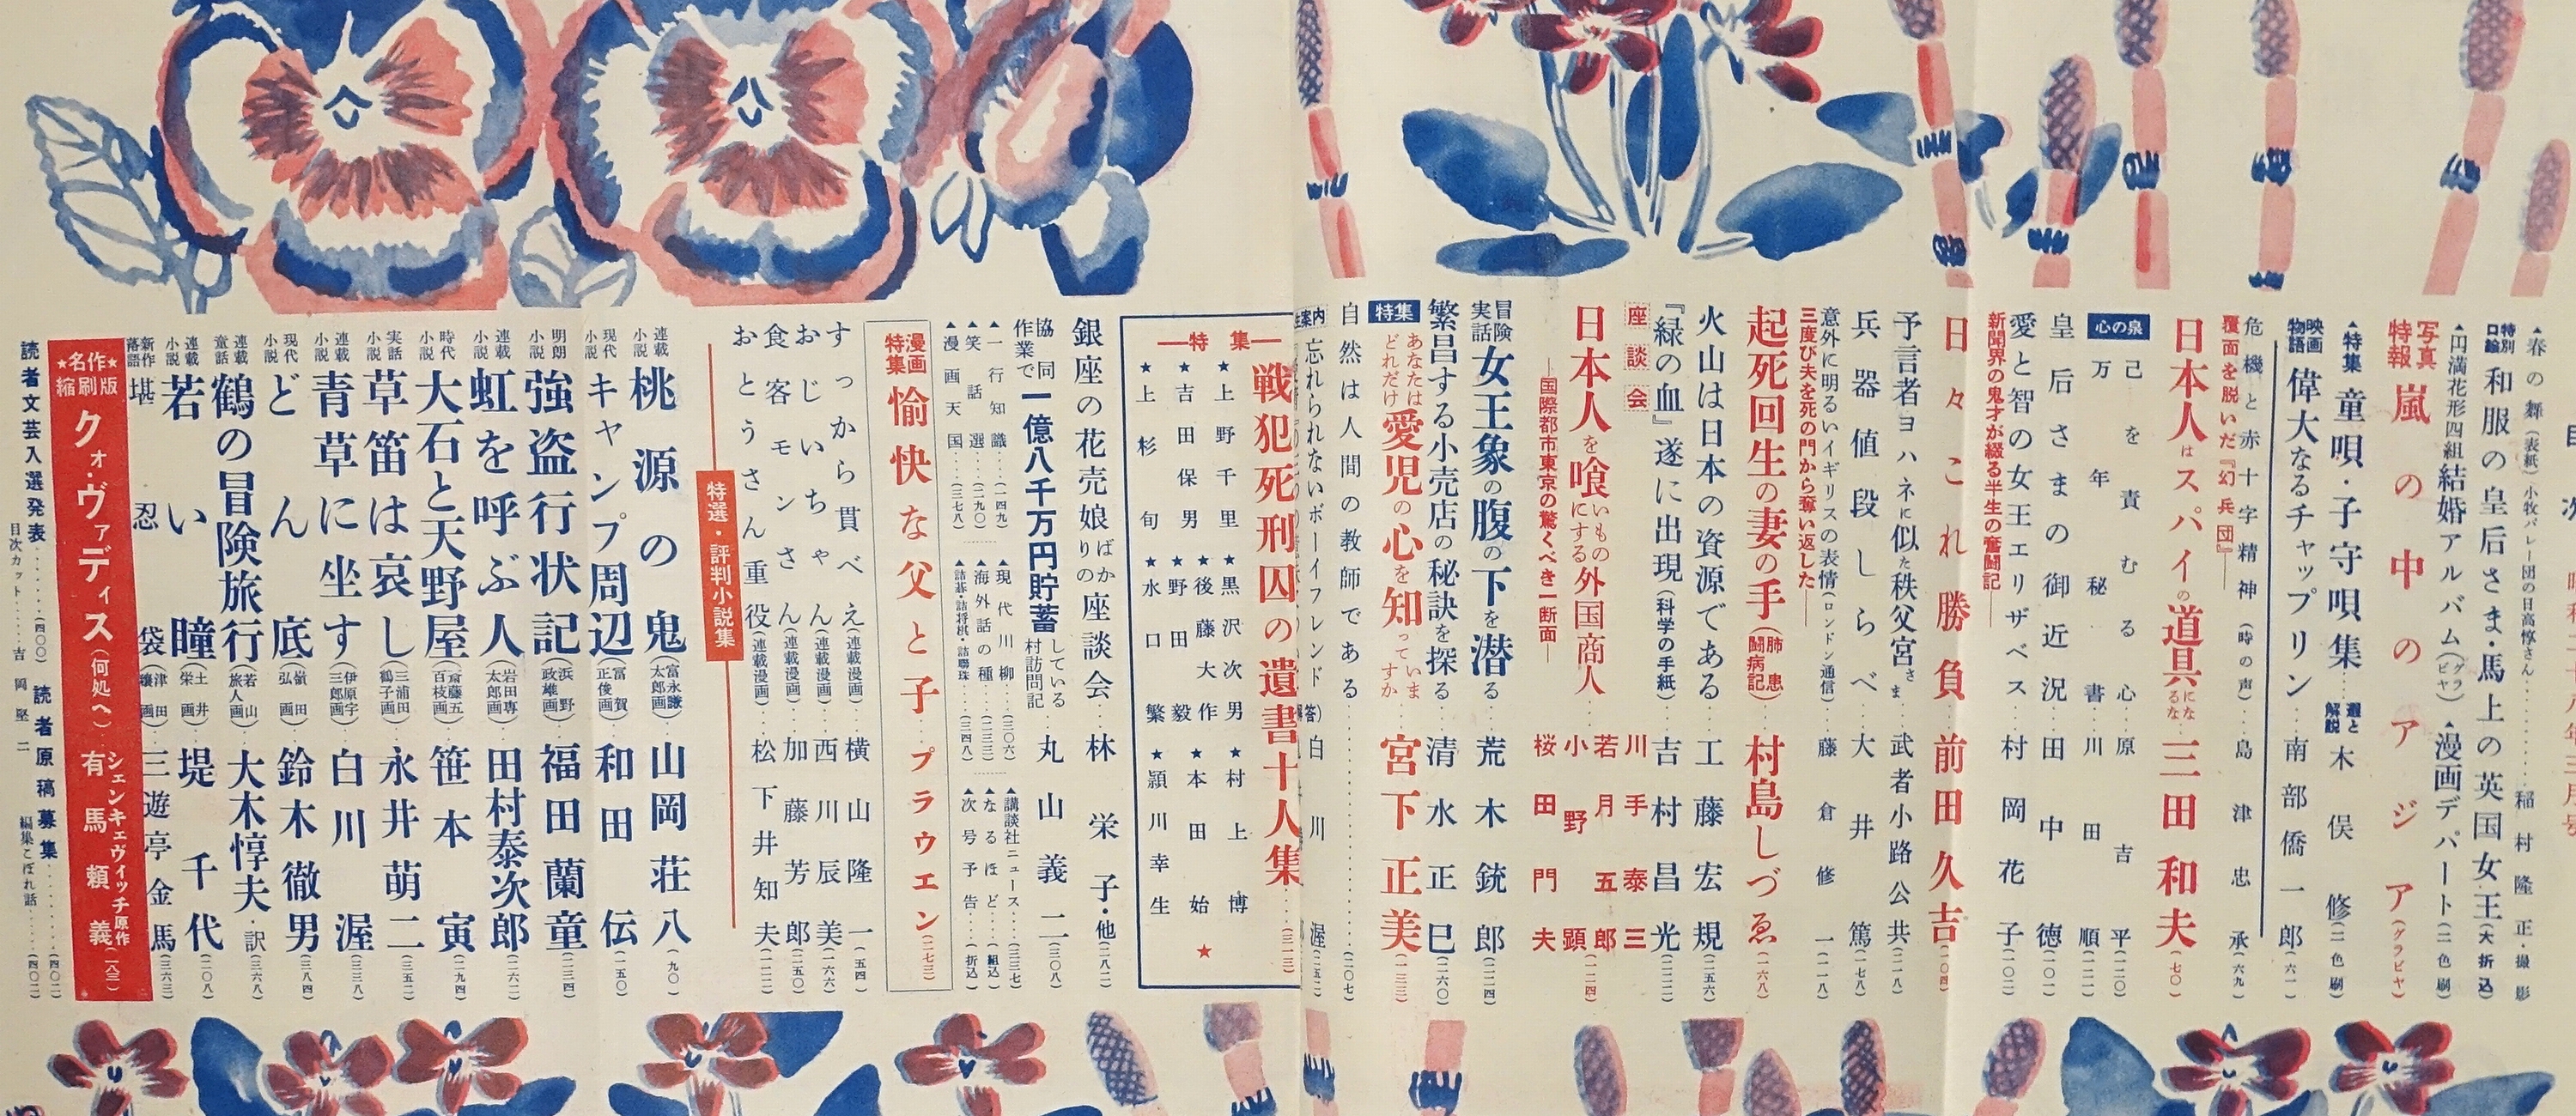 目次
▲春の舞(表紙)小牧バレー団の日高惇さん
特別口絵 和服の皇后さま・馬上の英国女王(大折込)
稲村隆正・撮影
▲円満花形四組 結婚アルバム(グラビヤ)▲漫画デパート(二色刷)
写真特報 嵐の中のアジア(グラビヤ)
▲特集 童唄・子守唄集 選と解説 木俣修(二色刷)
映画物語 偉大なるチャップリン 南部僑一郎(六一)
危機と赤十字精神(時の声) 島津忠承(六九)
覆面を脱いだ『幻兵団』
日本人はスパイの道具になるな 三田和夫(七〇)
心の泉
己を責むる心 原吉平(一二〇)
万年秘書 川田順(一二一)
皇后さまの御近況 田中徳(一〇一)
愛と智の女王エリザベス 村岡花子(一〇二)
新聞界の鬼才が綴る半生の奮闘記
日々これ勝負 前田久吉(一〇四)
予言者ヨハネに似た秩父宮さま 武者小路公共(二一八)
兵器値段しらべ 大井篤(一七八)
意外に明るいイギリスの表情(ロンドン通信) 藤倉修一(一一八)
三度び夫を死の門から奪い返した
起死回生の妻の手(肺患闘病記) 村島しづゑ(一六八)
火山は日本の資源である 工藤宏規(二五六)
『緑の血』遂に出現(科学の手紙) 吉村昌光(二二二)
座談会
日本人を喰いものにする外国商人
国際都市東京の驚くべき一断面
川手泰三
若月五郎
小野顕
桜田門夫
(一二四)
冒険実話 女王象の腹の下を潜る 荒木銃郎(二一四)
繁昌する小売店の秘訣を探る 清水正巳(二六〇)
特集 あなたはどれだけ愛児の心を知っていますか 宮下正美(一三三)
自然は人間の教師である(二〇七)
忘れられないボーイフレンド 白川渥
特集
戦犯死刑囚の遺書十人集(三一三)
★上野千里★黒沢次男★村上博
★吉田保男★後藤大作★本田始
★野田毅
★上杉旬★水口繁★頴川幸生
銀座の花売娘ばかりの座談会 林栄子・他(二八二)
協同作業で一億八千万円貯蓄している村訪問記 丸山義二(三〇八)
▲一行知識(一四九)▲現代川柳(三〇六)▲講談社ニュース(三三七)
▲笑話選(二九〇)▲海外話の種(二三三)▲なるほど(組込)
▲漫画天国(三七八)▲詰碁・詰将棋・詰聯珠(三四八)▲次号予告(折込)
漫画特集 愉快な父と子 プラウエン(二七三)
すっから貫べえ(連載漫画) 横山隆一(一五四)
おじいちゃん(連載漫画) 西川辰美(一六六)
食客モンさん(連載漫画) 加藤芳郎(二五〇)
おとうさん重役(連載漫画) 松下井知夫(一二二)
特選・評判小説集
連載小説 桃源の鬼(富永謙太郎画) 山岡荘八(九〇)
現代小説 キャンプ周辺(富賀正俊画) 和田伝(一五〇)
明朗小説 強盗行状記(浜野政雄画) 福田蘭童(二三四)
連載小説 虹を呼ぶ人(岩田専太郎画) 田村泰次郎(二六二)
時代小説 大石と天野屋(斎藤五百枝画) 笹本寅(二九四)
実話小説 草笛は哀し(三浦田鶴子画) 永井萌二(三五二)
連載小説 青草に坐す(伊原宇三郎画) 白川渥(三三八)
現代小説 どん底(嶺田弘画) 鈴木徹男(三八四)
連載童話 鶴の冒険旅行(若山旅人画) 大木惇夫・訳(三六八)
連載小説 若い瞳(土井栄画) 堤千代(二〇八)
新作落語 堪忍袋(津田穣画) 三遊亭金馬(三六三)
★名作★縮刷版
クォ・ヴァディス(何処へ) シェンキェヴィッチ原作 有馬頼義(一八三)
読者文芸入選発表(四〇〇) 読者原稿募集(四〇二)
目次カット 吉岡堅二 編集こぼれ話(四〇二)